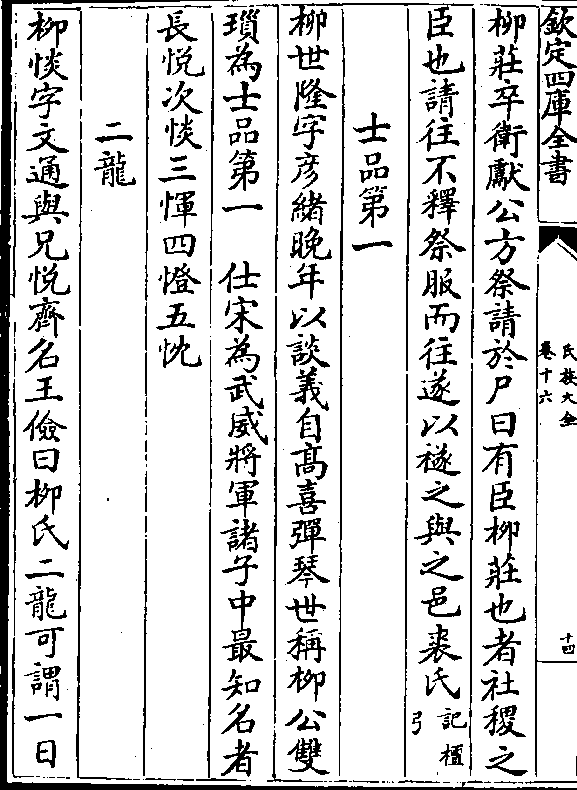 欽定四庫全書
氏族大全
卷十六
十四
柳莊卒衛獻公方祭請於尸曰有臣柳莊也者社稷之
臣也請往不釋祭服而往遂以襚之與之邑裘氏記檀弓
士品第一
柳世隆字彦緒晩年以談義自髙喜彈琴世稱柳公雙
瑣為士品第一　仕宋為武威將軍諸子中最知名者
長悦次惔三惲四憕五忱
二龍
柳惔字文通與兄悦齊名王儉曰柳氏二龍可謂一日